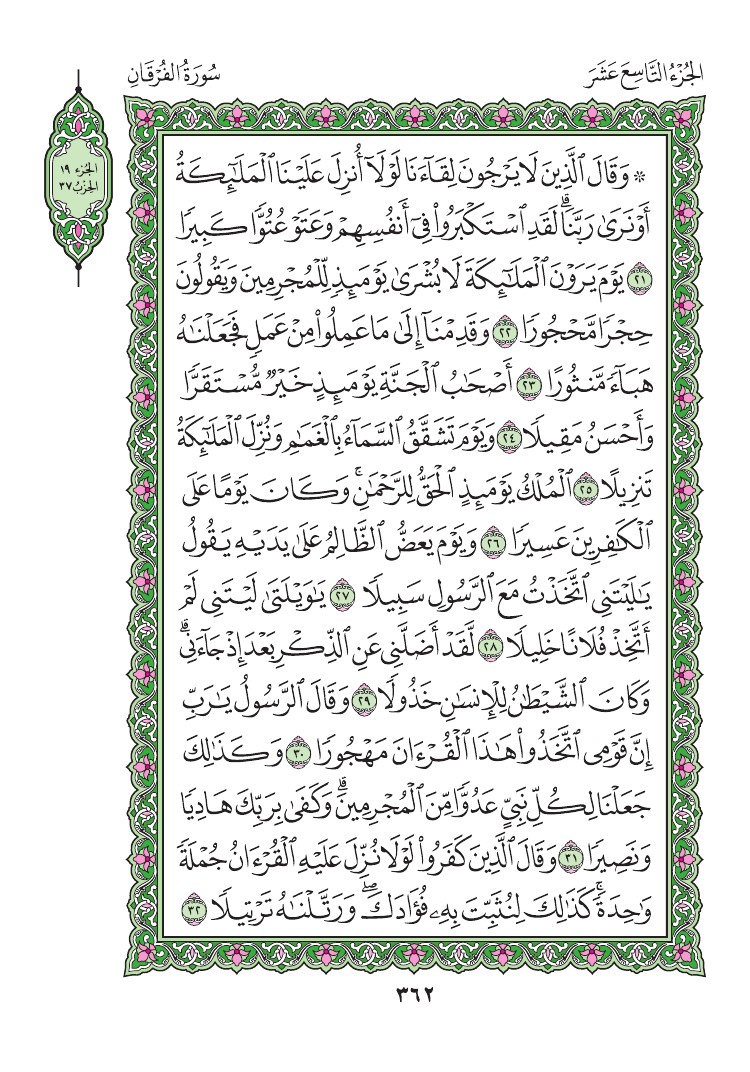 الجُزْءُ التَّاسِعَ عَشَرَ
سُورَةُ الفُرْقَانِ
الجزء ١٩
الحِزْبُ ٣٧
۞ وَقَالَ ٱلَّذِينَ لَا يَرْجُونَ لِقَآءَنَا لَوْلَآ أُنزِلَ عَلَيْنَا ٱلْمَلَٰٓئِكَةُ
أَوْ نَرَىٰ رَبَّنَاۗ لَقَدِ ٱسْتَكْبَرُوا۟ فِىٓ أَنفُسِهِمْ وَعَتَوْ عُتُوًّا كَبِيرًا
٢١ يَوْمَ يَرَوْنَ ٱلْمَلَٰٓئِكَةَ لَا بُشْرَىٰ يَوْمَئِذٍ لِّلْمُجْرِمِينَ وَيَقُولُونَ
حِجْرًا مَّحْجُورًا ٢٢ وَقَدِمْنَآ إِلَىٰ مَا عَمِلُوا۟ مِنْ عَمَلٍ فَجَعَلْنَٰهُ
هَبَآءً مَّنثُورًا ٢٣ أَصْحَٰبُ ٱلْجَنَّةِ يَوْمَئِذٍ خَيْرٌ مُّسْتَقَرًّا
وَأَحْسَنُ مَقِيلًا ٢٤ وَيَوْمَ تَشَقَّقُ ٱلسَّمَآءُ بِٱلْغَمَٰمِ وَنُزِّلَ ٱلْمَلَٰٓئِكَةُ
تَنزِيلًا ٢٥ ٱلْمُلْكُ يَوْمَئِذٍ ٱلْحَقُّ لِلرَّحْمَٰنِۚ وَكَانَ يَوْمًا عَلَى
ٱلْكَٰفِرِينَ عَسِيرًا ٢٦ وَيَوْمَ يَعَضُّ ٱلظَّالِمُ عَلَىٰ يَدَيْهِ يَقُولُ
يَٰلَيْتَنِى ٱتَّخَذْتُ مَعَ ٱلرَّسُولِ سَبِيلًا ٢٧ يَٰوَيْلَتَىٰ لَيْتَنِى لَمْ
أَتَّخِذْ فُلَانًا خَلِيلًا ٢٨ لَّقَدْ أَضَلَّنِى عَنِ ٱلذِّكْرِ بَعْدَ إِذْ جَآءَنِىۗ
وَكَانَ ٱلشَّيْطَٰنُ لِلْإِنسَٰنِ خَذُولًا ٢٩ وَقَالَ ٱلرَّسُولُ يَٰرَبِّ
إِنَّ قَوْمِى ٱتَّخَذُوا۟ هَٰذَا ٱلْقُرْءَانَ مَهْجُورًا ٣٠ وَكَذَٰلِكَ
جَعَلْنَا لِكُلِّ نَبِىٍّ عَدُوًّا مِّنَ ٱلْمُجْرِمِينَۗ وَكَفَىٰ بِرَبِّكَ هَادِيًا
وَنَصِيرًا ٣١ وَقَالَ ٱلَّذِينَ كَفَرُوا۟ لَوْلَا نُزِّلَ عَلَيْهِ ٱلْقُرْءَانُ جُمْلَةً
وَٰحِدَةًۚ كَذَٰلِكَ لِنُثَبِّتَ بِهِۦ فُؤَادَكَۖ وَرَتَّلْنَٰهُ تَرْتِيلًا ٣٢
٣٦٢